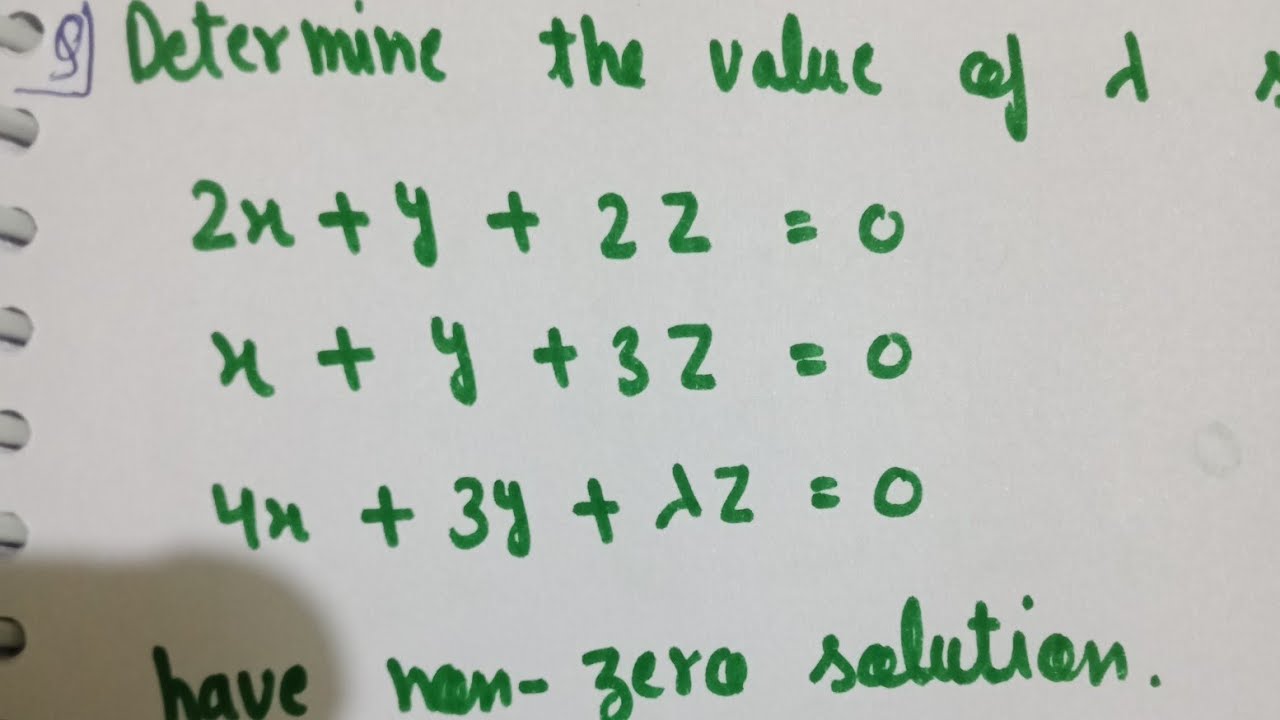 Q Determine the value of λ
2x + y + 2z = 0
x + y + 3z = 0
4x + 3y + λz = 0
have non-zero solution.